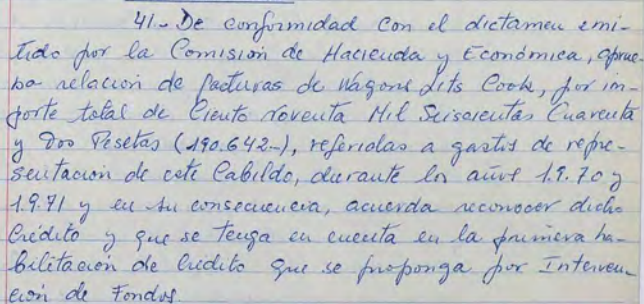 41.- De conformidad con el dictamen emi-
tido por la Comisión de Hacienda y Económica, aprue-
ba relación de facturas de Wagons Lits Cook, por im-
porte total de Ciento Noventa Mil Seiscientas Cuarenta
y Dos Pesetas (190.642-), referidas a gastos de repre-
sentación de este Cabildo, durante los años 1.9.70 y
1.9.71 y en su consecuencia, acuerda reconocer dicho
Crédito y que se tenga en cuenta en la primera ha-
bilitación de Crédito que se proponga por Interven-
ción de Fondos.